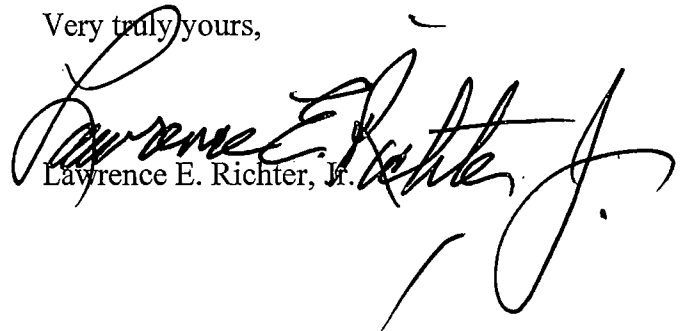 Very truly yours,
Lawrence E. Richter, Jr.
Lawrence E. Richter, Jr.